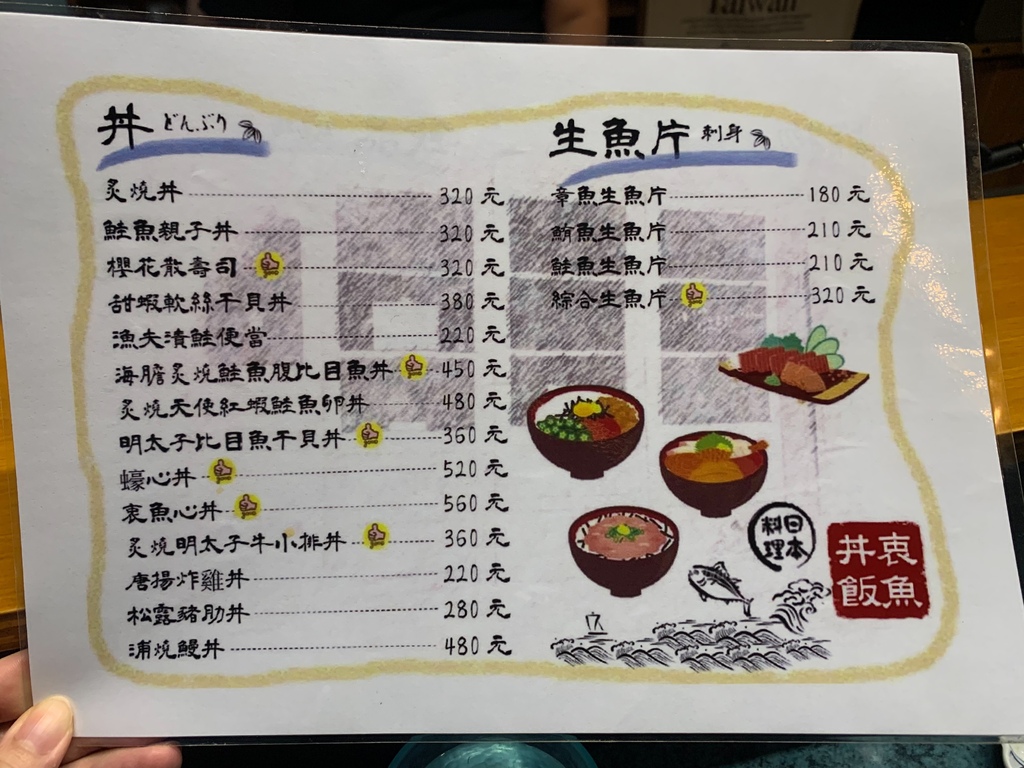 Taiwan
丼 どんぶり
炙燒丼 320 元
鮭魚親子丼 320 元
櫻花散壽司 320 元
甜蝦軟絲干貝丼 380 元
漁夫漬鮭便當 220 元
海膽炙燒鮭魚腹比目魚丼 450 元
炙燒天使紅蝦鮭魚卵丼 480 元
明太子比目魚干貝丼 360 元
蠔心丼 520 元
衷魚心丼 560 元
炙燒明太子牛小排丼 360 元
唐揚炸雞丼 220 元
松露豬肋丼 280 元
浦燒鰻丼 480 元
生魚片 刺身
章魚生魚片 180 元
鮪魚生魚片 210 元
鮭魚生魚片 210 元
綜合生魚片 320 元
日本
料理
衷魚
丼飯